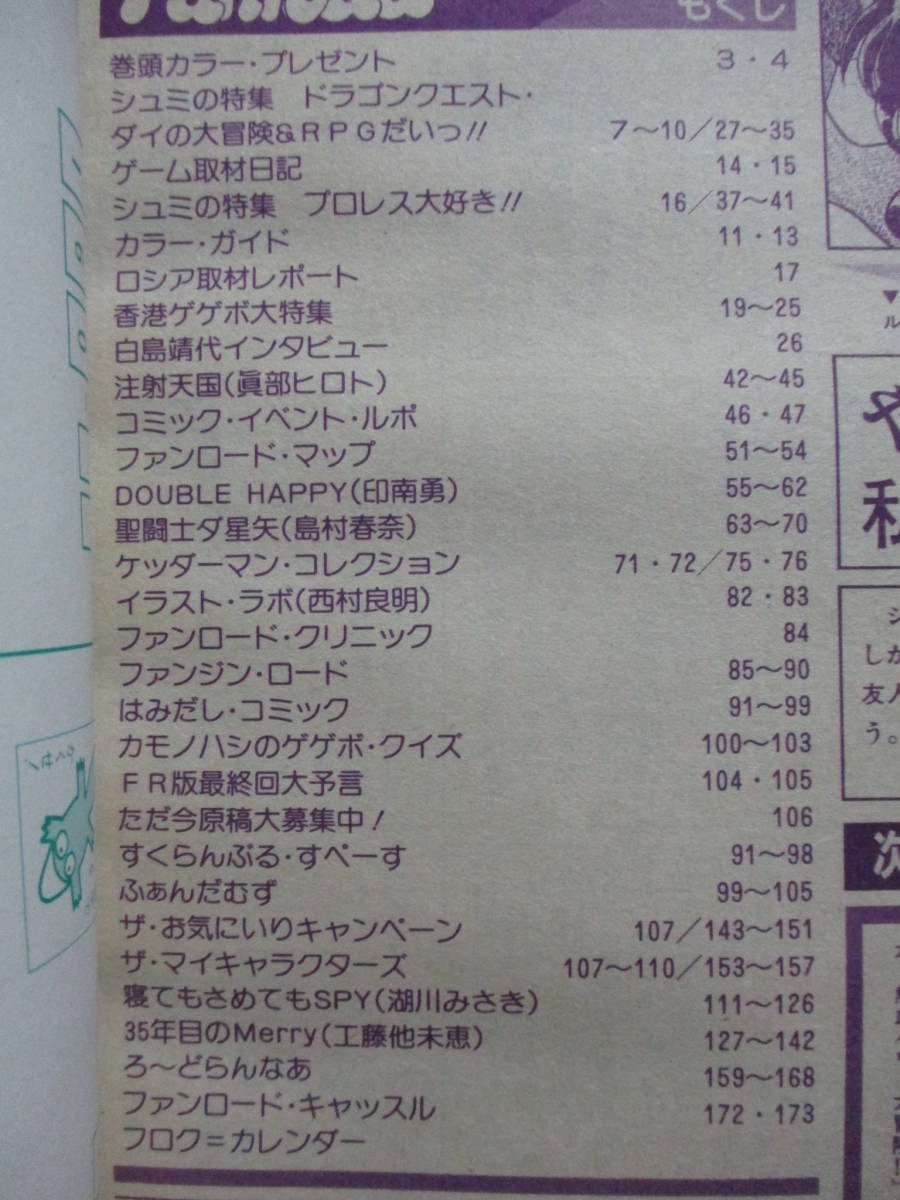 もくじ
巻頭カラー・プレゼント 3・4
シュミの特集 ドラゴンクエスト・
ダイの大冒険&RPGだいっ!! 7〜10/27〜35
ゲーム取材日記 14・15
シュミの特集 プロレス大好き!! 16/37〜41
カラー・ガイド 11・13
ロシア取材レポート 17
香港ゲゲボ大特集 19〜25
白島靖代インタビュー 26
注射天国(眞部ヒロト) 42〜45
コミック・イベント・ルポ 46・47
ファンロード・マップ 51〜54
DOUBLE HAPPY(印南勇) 55〜62
聖闘士ダ星矢(島村春奈) 63〜70
ケッダーマン・コレクション 71・72/75・76
イラスト・ラボ(西村良明) 82・83
ファンロード・クリニック 84
ファンジン・ロード 85〜90
はみだし・コミック 91〜99
カモノハシのゲゲボ・クイズ 100〜103
FR版最終回大予言 104・105
ただ今原稿大募集中! 106
すくらんぶる・すぺーす 91〜98
ふぁんだむず 99〜105
ザ・お気にいりキャンペーン 107/143〜151
ザ・マイキャラクターズ 107〜110/153〜157
寝てもさめてもSPY(湖川みさき) 111〜126
35年目のMerry(工藤他未恵) 127〜142
ろ〜どらんなあ 159〜168
ファンロード・キャッスル 172・173
フロク=カレンダー
しか
友人
う。
次